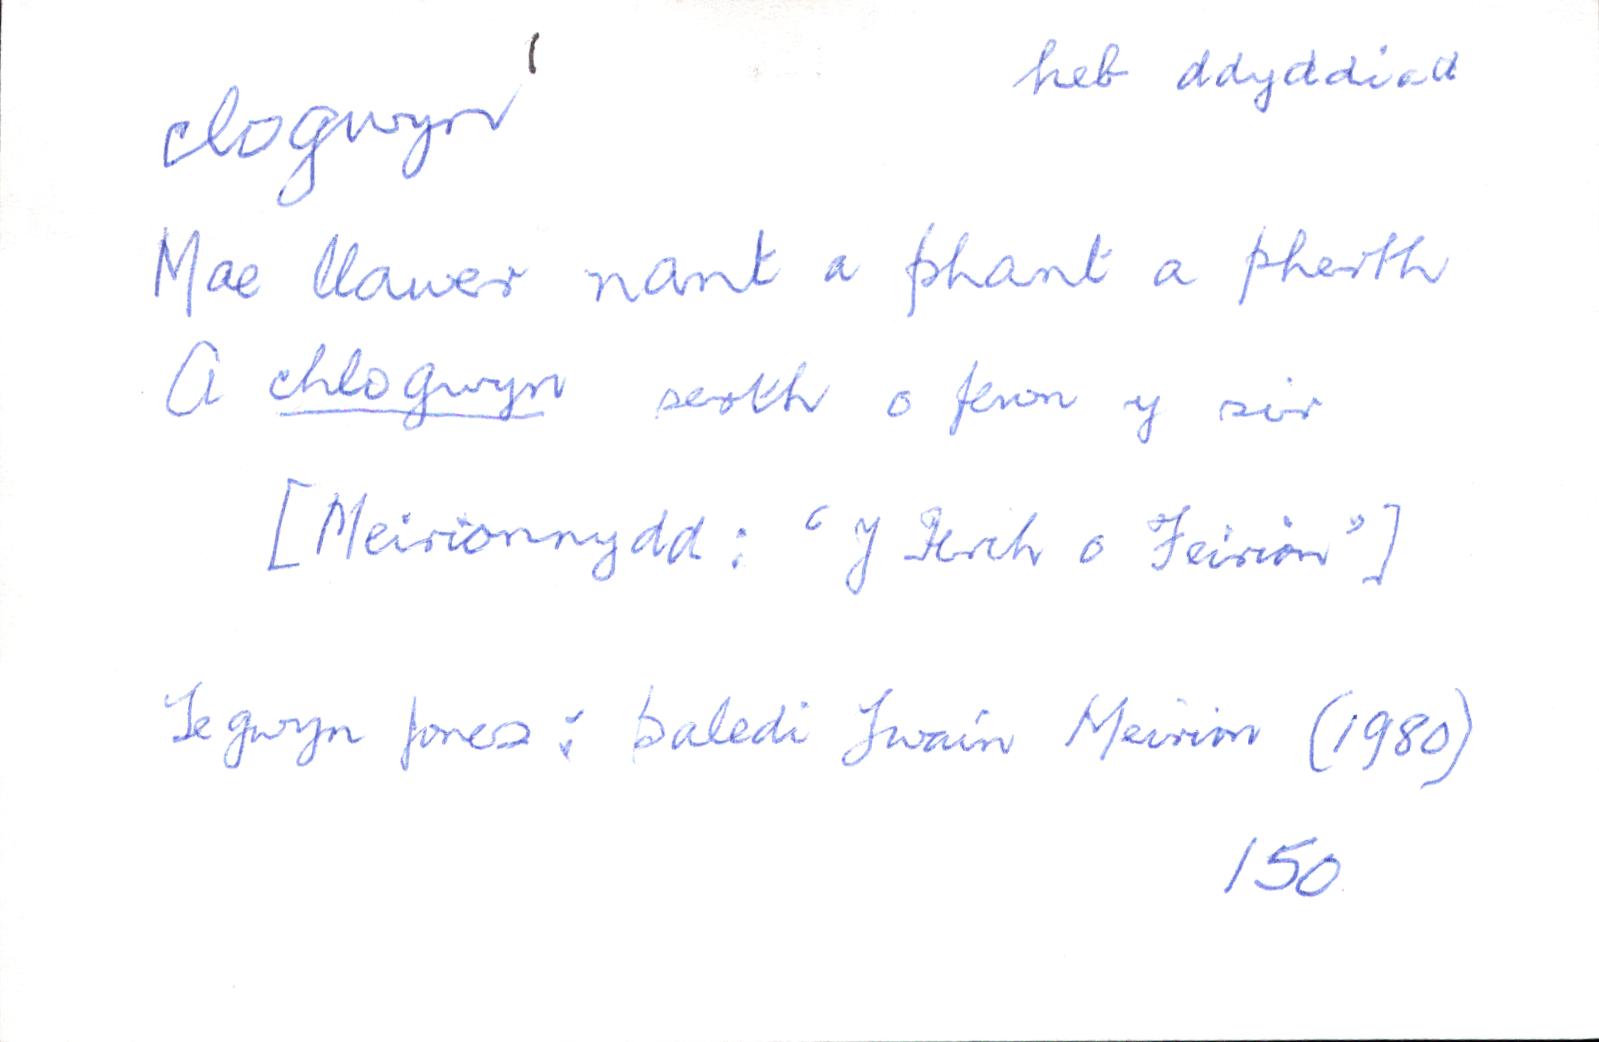 clogwyn¹ heb ddyddiad
Mae llawer nant a phant a pherth
A chlogwyn serth o fewn y sir
[Meirionnydd: "Y Ferch o Feirion"]
Tegwyn Jones: Baledi Ywain Meirion (1980)
150